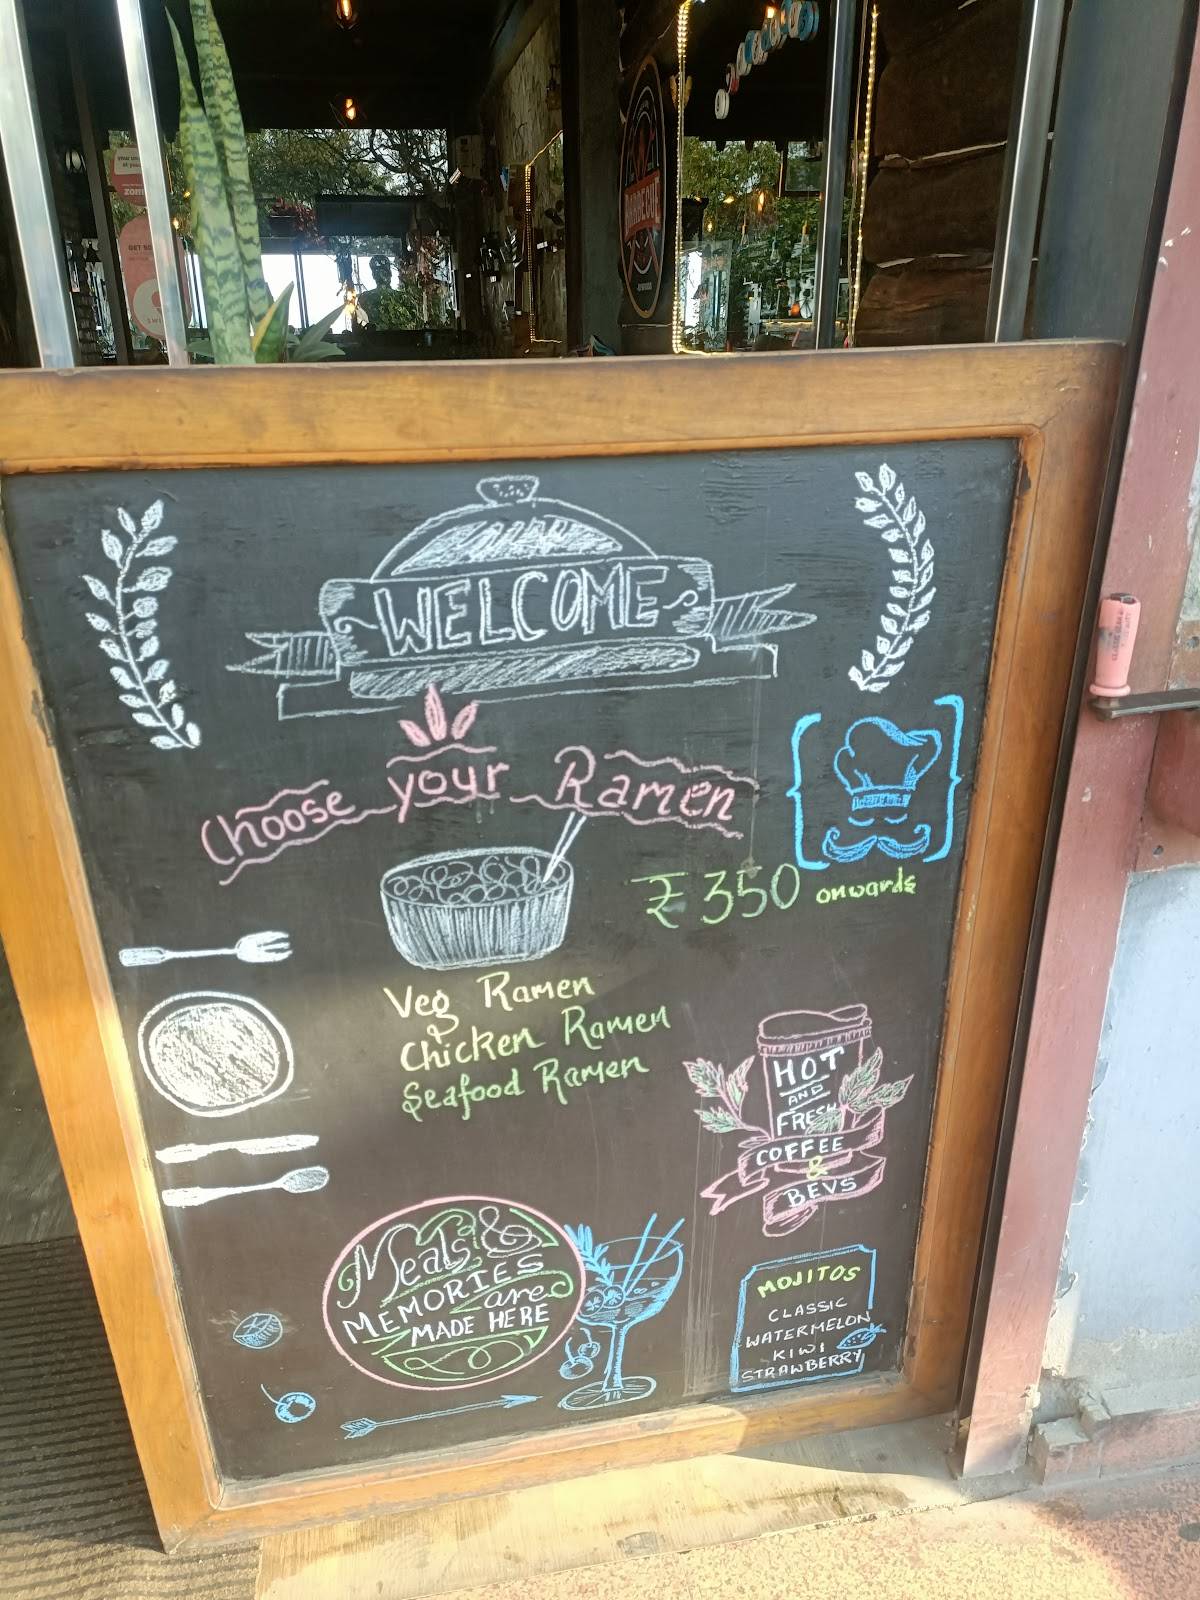 zom
GET
BARBECUE
WELCOME
Choose your Ramen
₹ 350 onwards
Veg Ramen
Chicken Ramen
Seafood Ramen
HOT
AND
FRESH
COFFEE
&
BEVS
Meals &
MEMORIES
are
MADE HERE
MOJITOS
CLASSIC
WATERMELON
KIWI
STRAWBERRY